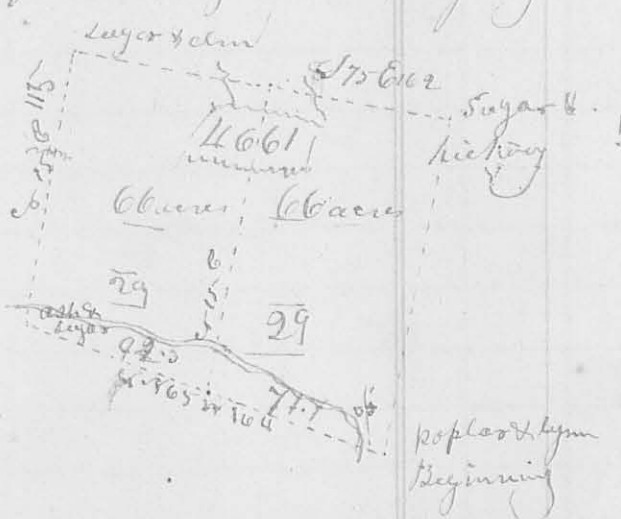 Sugar & elm
S 75 E 162
Sugar &
hickory
4661
66 acres 66 acres
29
29
ash &
sugar
92.5
77.7
poplar & lynn
Beginning